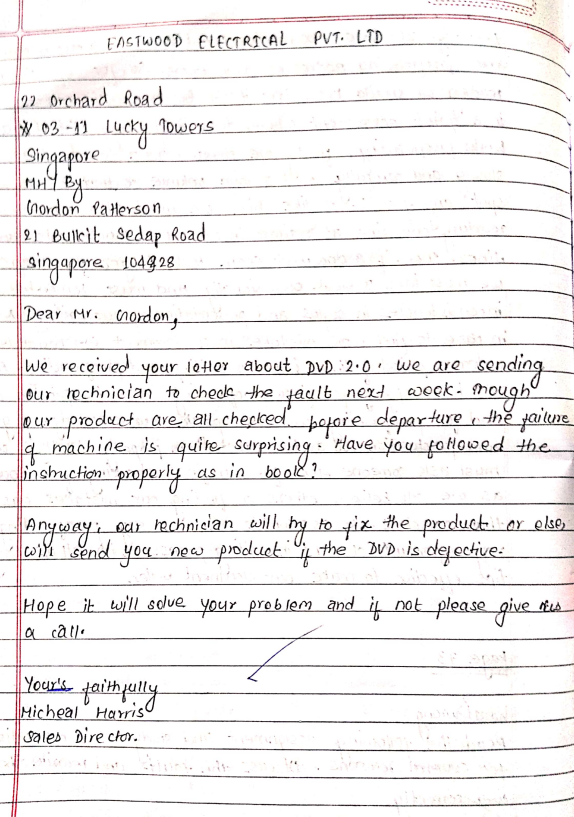 EASTWOOD ELECTRICAL PVT. LTD
22 Orchard Road
# 03-11 Lucky Towers
Singapore
MH4 By
Gordon Patterson
21 Bulkit Sedap Road
Singapore 104928
Dear Mr. Gordon,
We received your letter about DVD 2.0. We are sending
our technician to check the fault next week. Though
our product are all checked before departure, the failure
of machine is quite surprising. Have you followed the
instruction properly as in book?
Anyway, our technician will try to fix the product or else,
will send you new product if the DVD is defective.
Hope it will solve your problem and if not please give us
a call.
Your's faithfully
Micheal Harris
Sales Director.